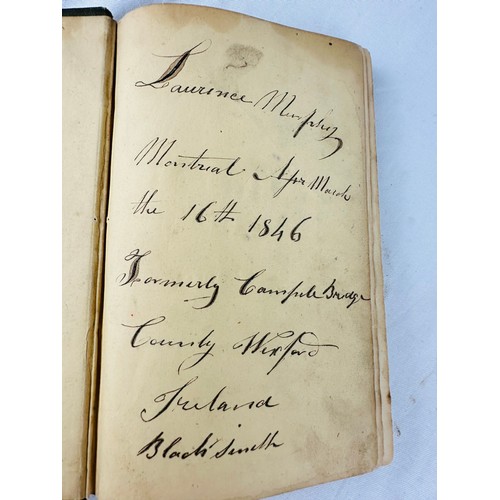 Laurence Murphy
Montreal March
the 16th 1846
Formerly Campile Bridge
County Wexford
Ireland
Black smith